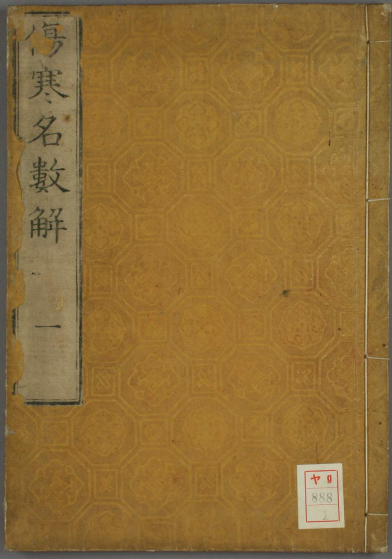 傷寒名數解 一
ヤ9
888
1